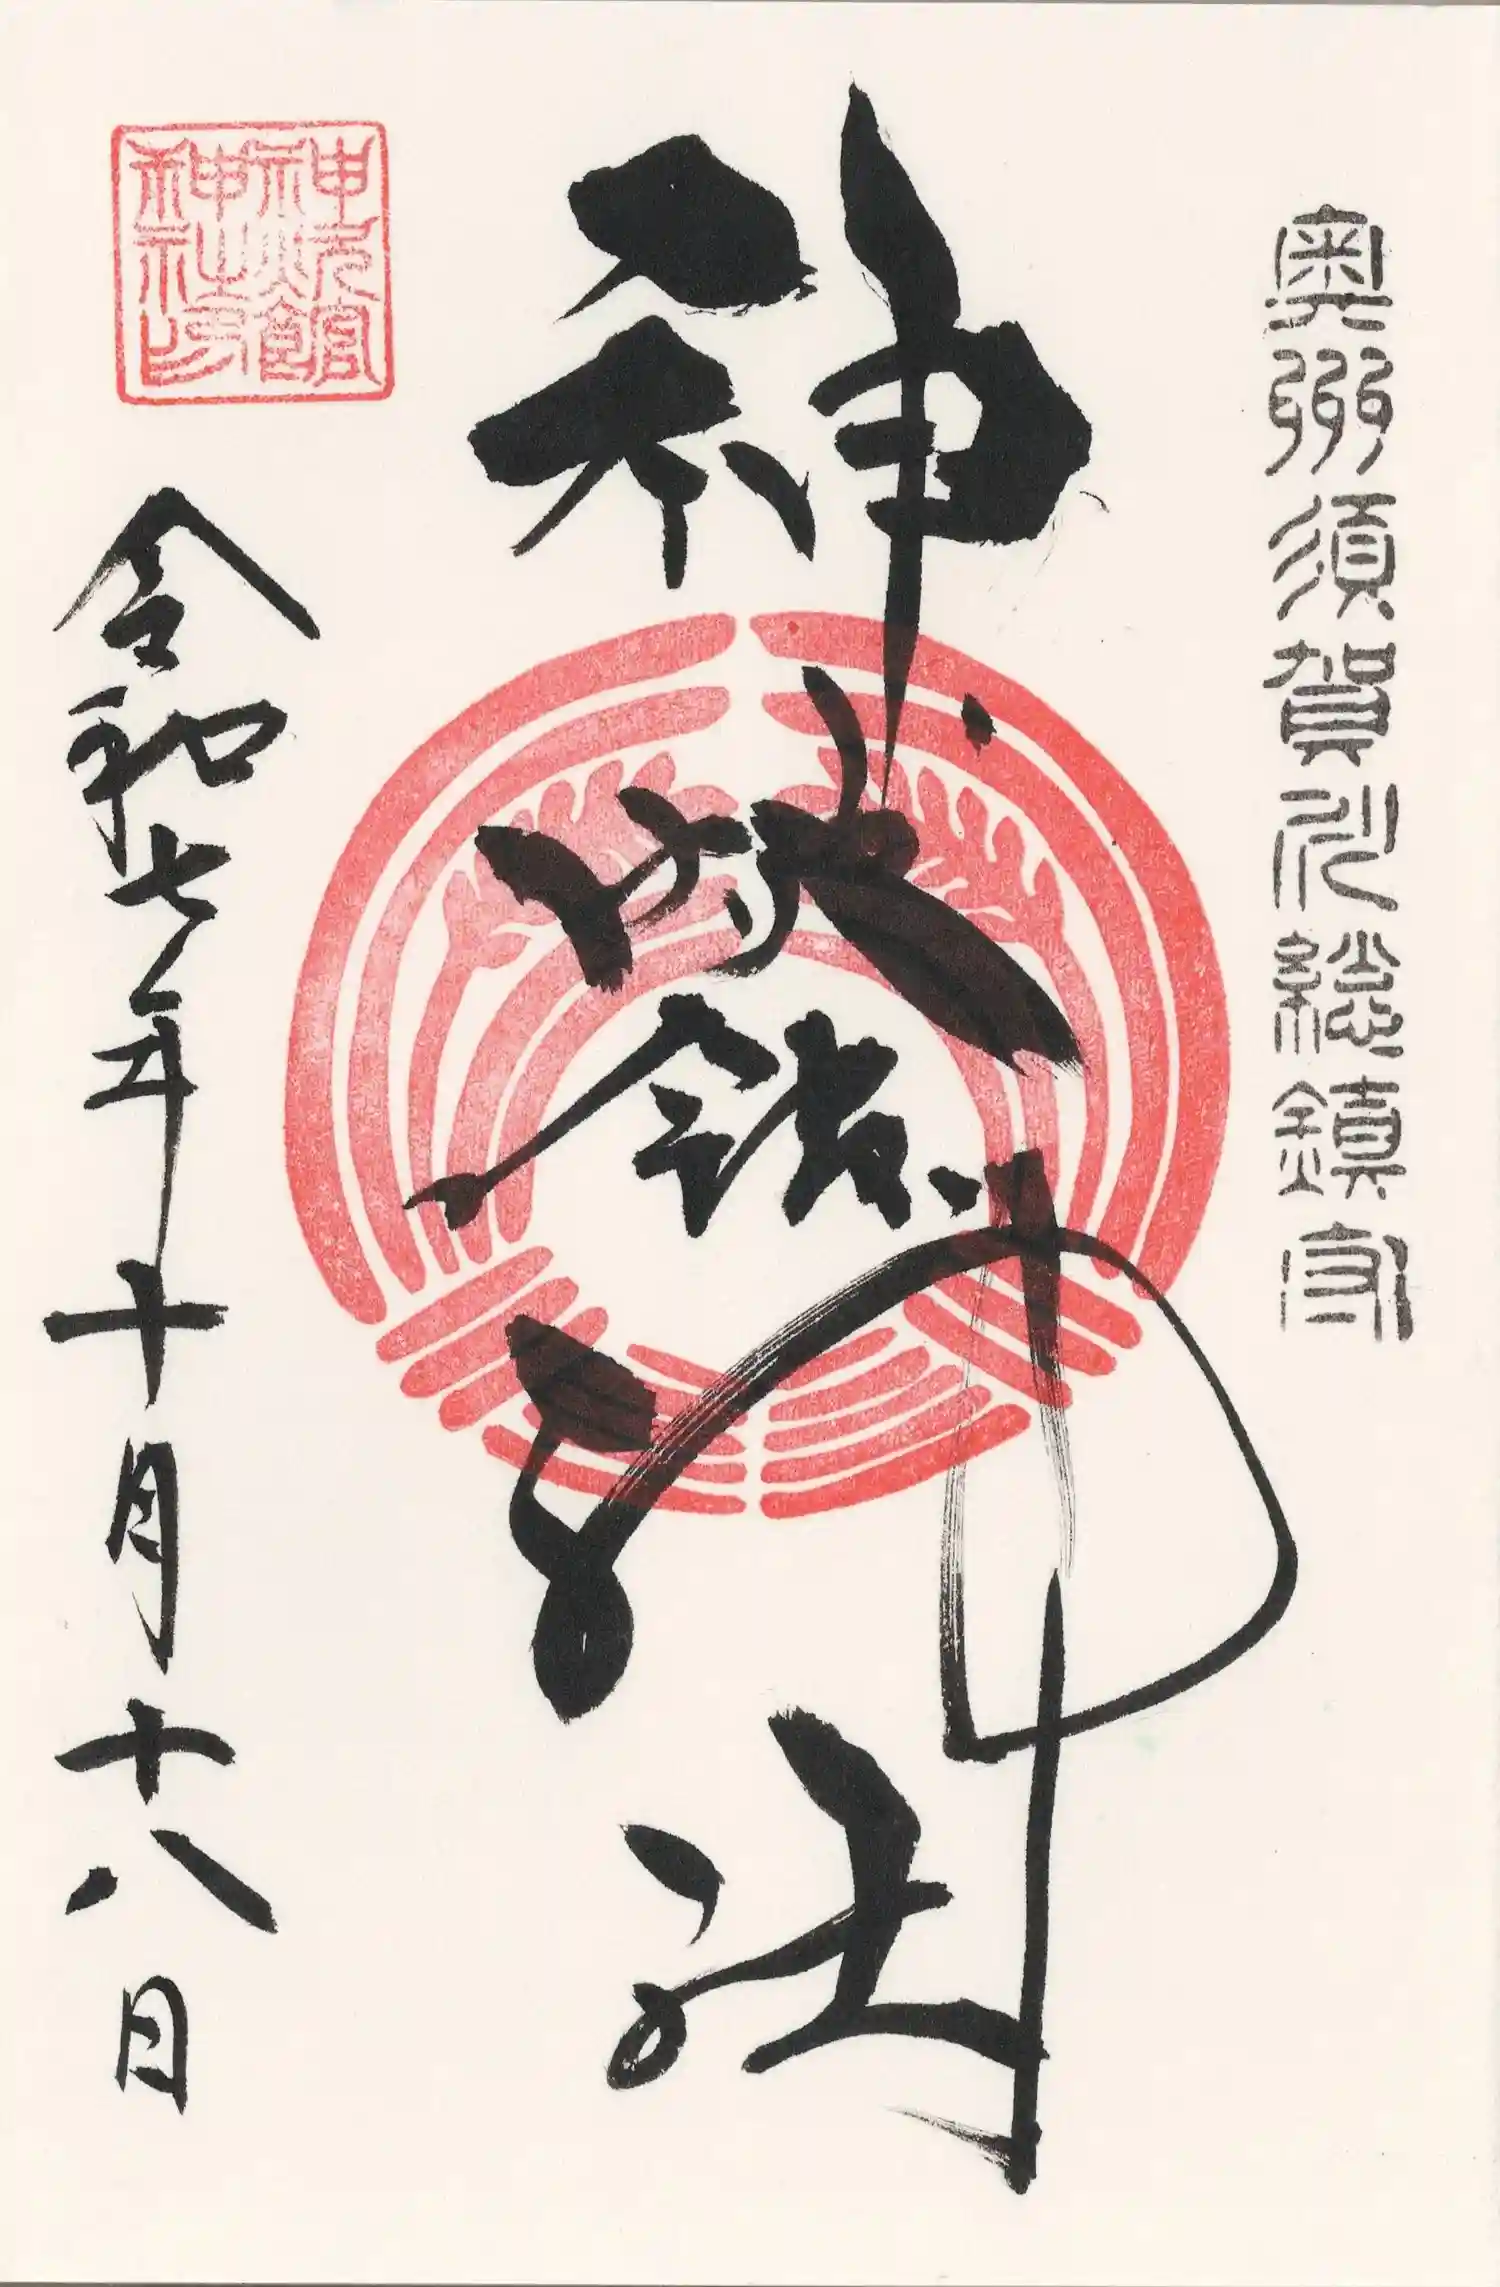 奥州須賀川総鎮守
神炊館神社
令和七年十月十八日
神炊館
神社印